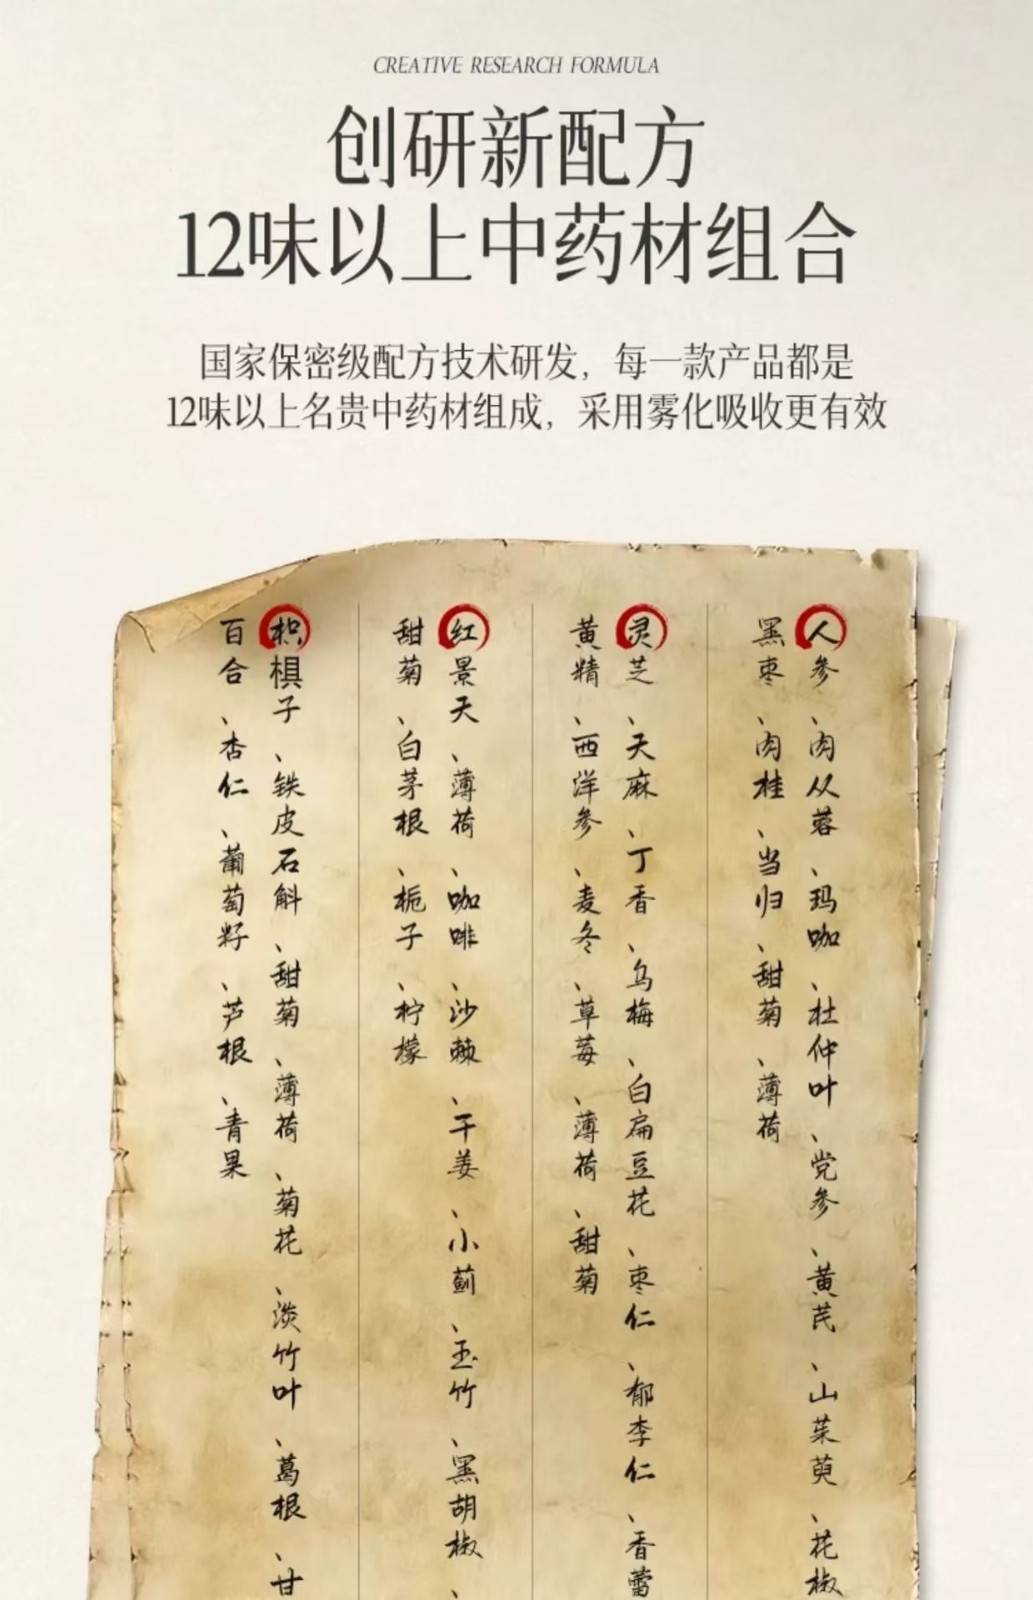 CREATIVE RESEARCH FORMULA
创研新配方
12味以上中药材组合
国家保密级配方技术研发，每一款产品都是
12味以上名贵中药材组成，采用雾化吸收更有效
人参、肉从蓉、玛咖、杜仲叶、党参、黄芪、山茱萸、花椒
黑枣、肉桂、当归、甜菊、薄荷
灵芝、天麻、丁香、乌梅、白扁豆花、枣仁、郁李仁、香蕾
黄精、西洋参、麦冬、草莓、薄荷、甜菊
红景天、薄荷、咖啡、沙棘、干姜、小蓟、玉竹、黑胡椒、
甜菊、白茅根、栀子、柠檬
枳椇子、铁皮石斛、甜菊、薄荷、菊花、淡竹叶、葛根、甘
百合、杏仁、葡萄籽、芦根、青果